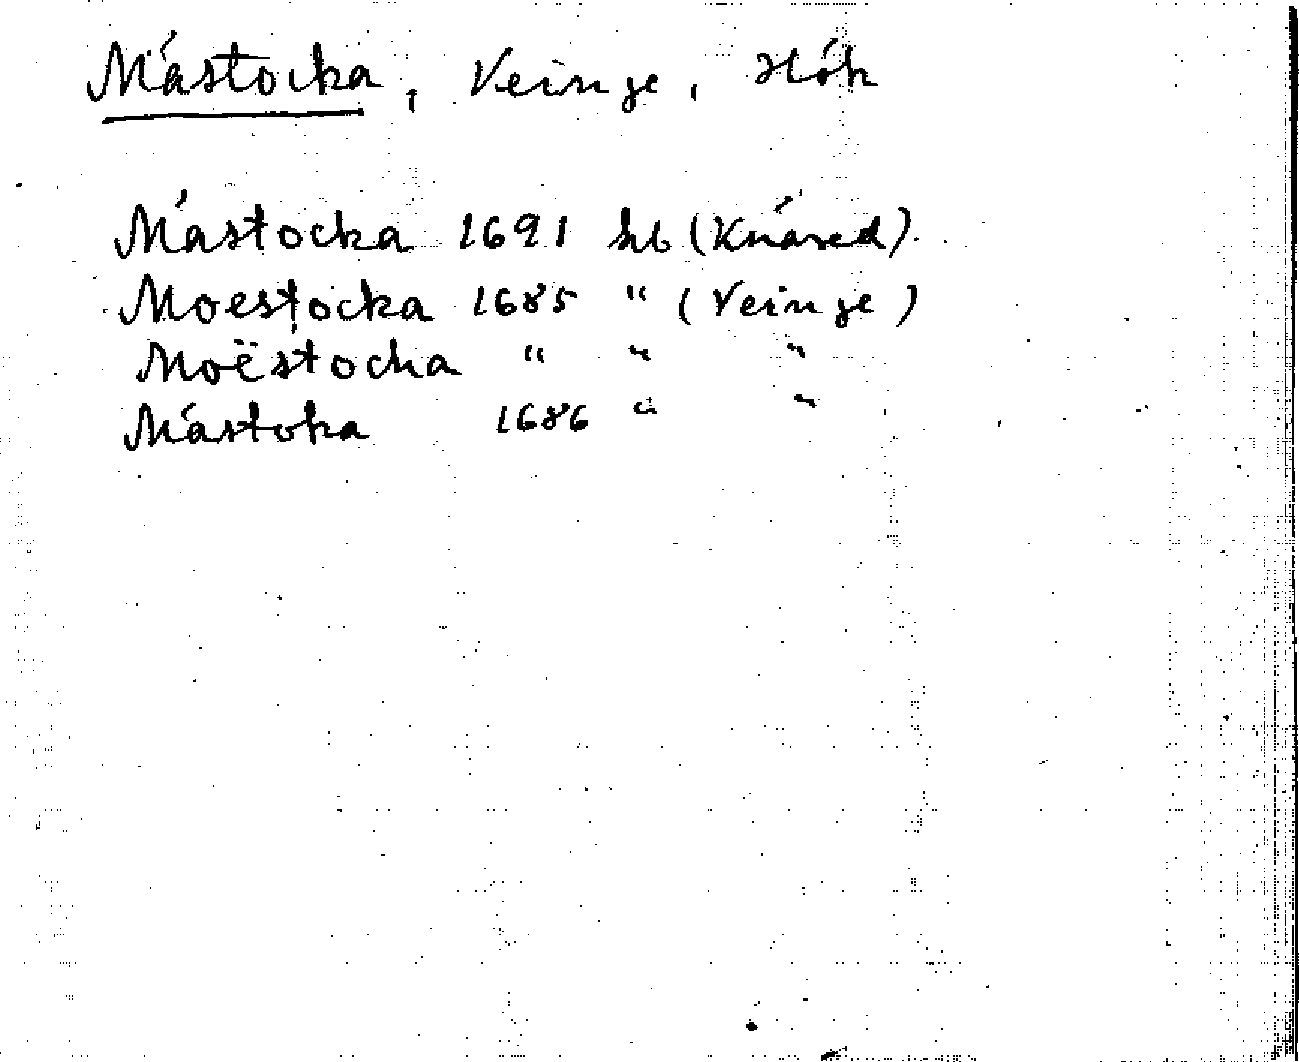 Mástocka, Veinge, Hök
Mástocka 1691 hb (Knäred).
Moestocka 1685 " (Veinge)
Moëstocka " " "
Mástoka 1686 " "